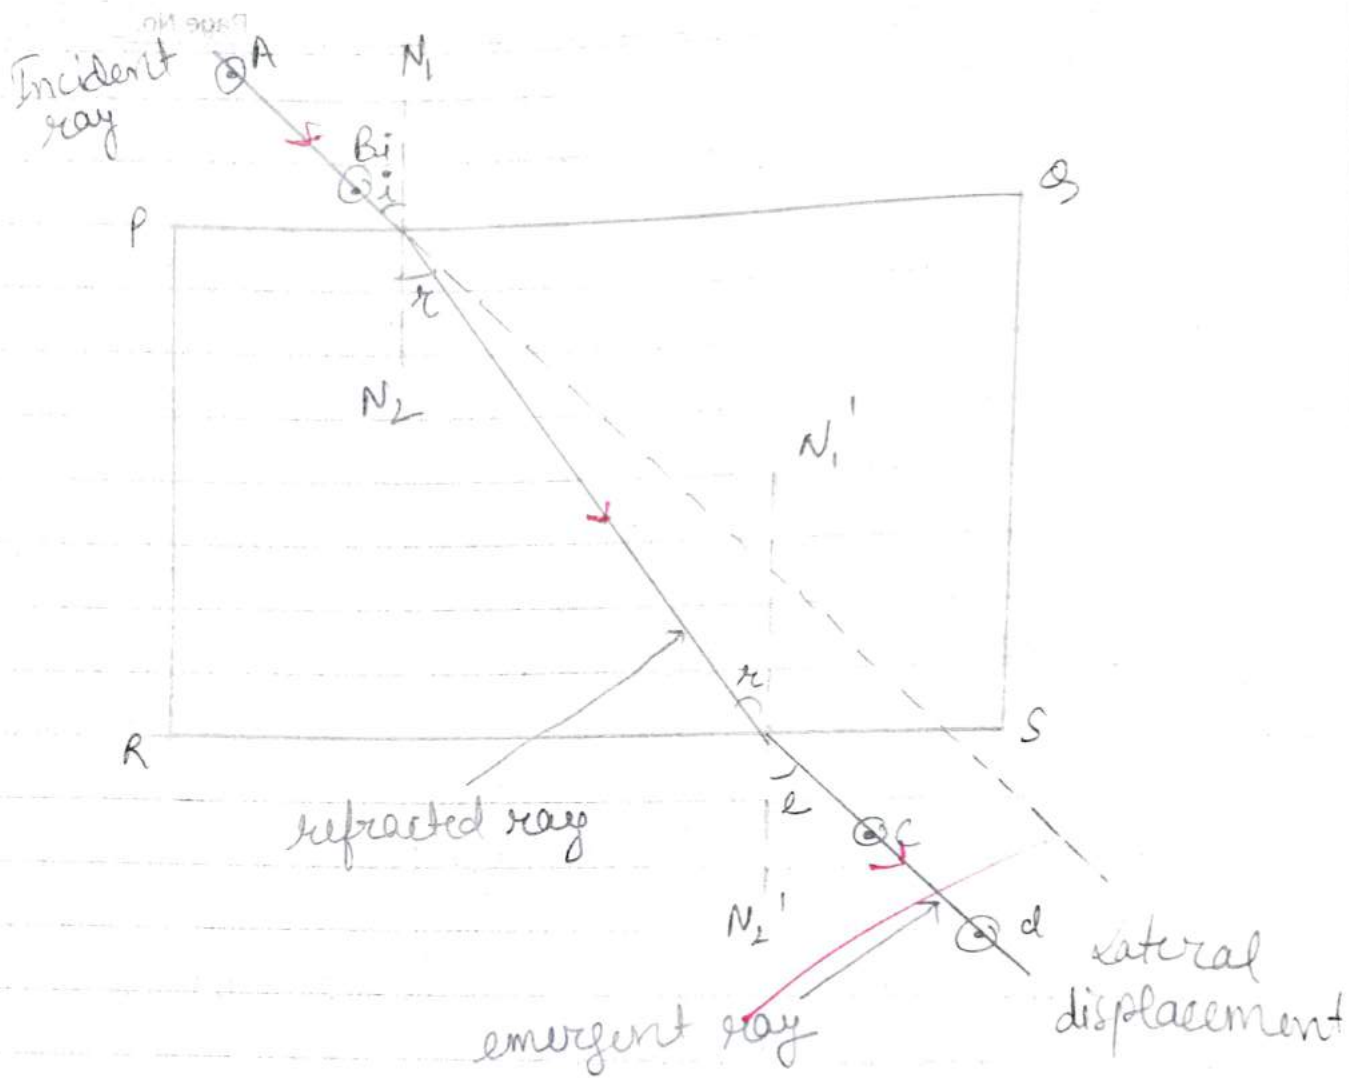 Page No.
A
N1
Incident
ray
Bi
i
P
Q
r
N2
N1'
r
R
S
refracted ray
e
C
N2'
d
Lateral
displacement
emergent ray